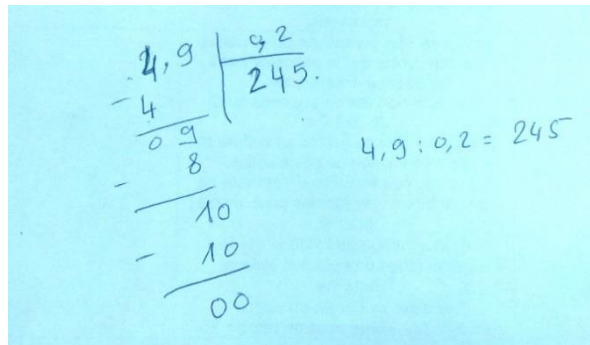 4,9 0,2
- 4 245.
0 9
- 8
10
- 10
00
4,9 : 0,2 = 245